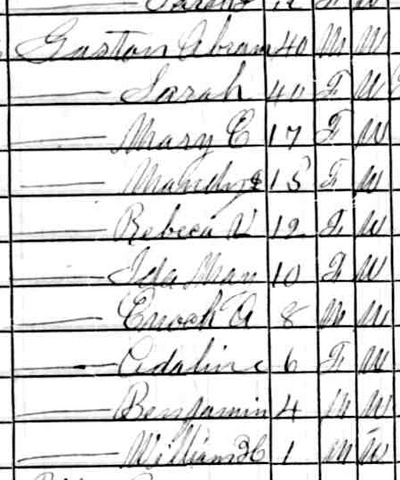 Sarah
Gaston Abram 40 M W
—— Sarah 40 F W
—— Mary E 17 F W
—— Mandy 15 F W
—— Rebeca V 12 F W
—— Ida May 10 F W
—— Enoch A 8 M W
—— Adaline 6 F W
—— Benjamin 4 M W
—— William H 1 M W